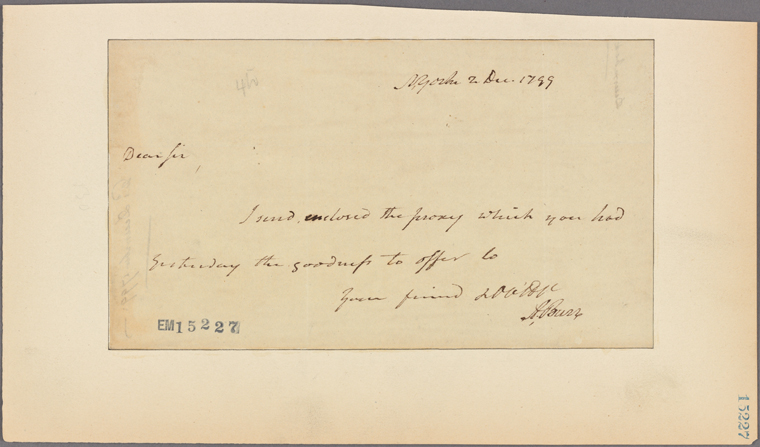 NYork 2 Dec. 1799
Dear Sir,
I send enclosed the proxy which you had
yesterday the goodness to offer to
Your friend & Ob St
A, Burr
EM15227
15227